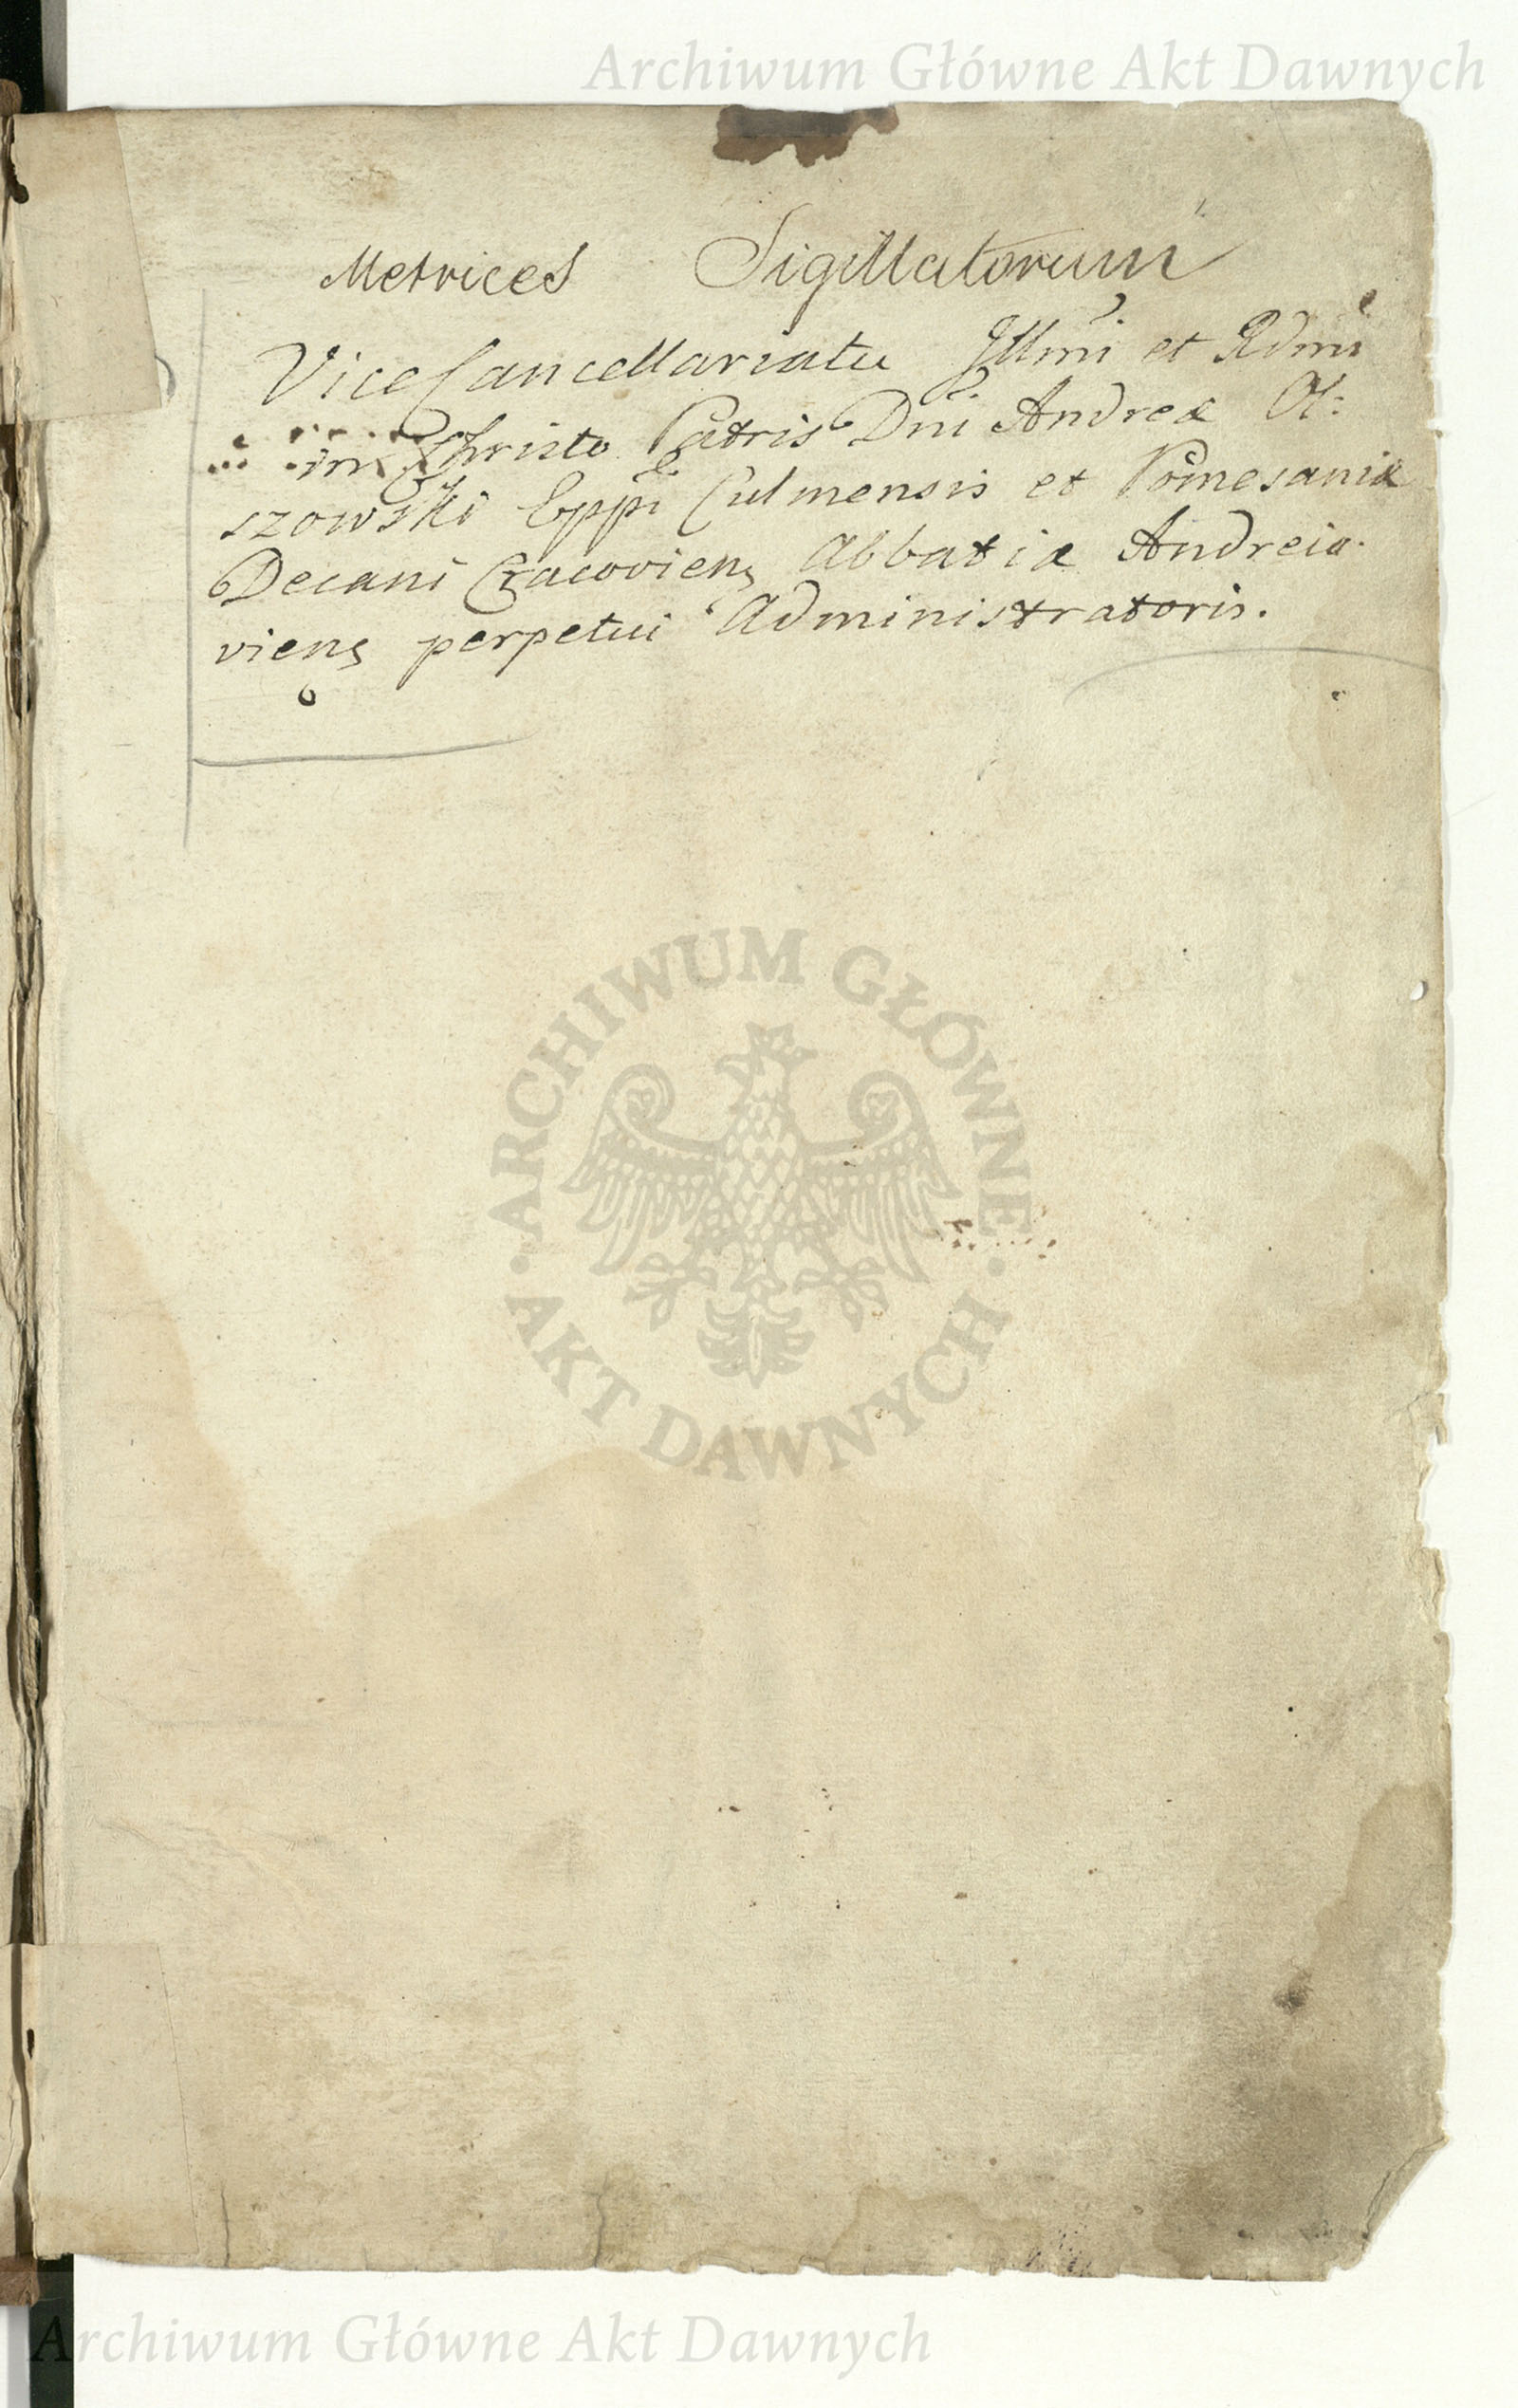 Archiwum Główne Akt Dawnych
Metrices Sigillatorum
ViceCancellariatu Illmi et Rdmi
in Christo Patris Dni Andreæ Ol:
szowski Eppi Culmensis et Pomesaniæ
Decani Cracoviens Abbatiæ Andreio.
viens perpetui Administratoris.
ARCHIWUM GŁÓWNE
AKT DAWNYCH
Archiwum Główne Akt Dawnych